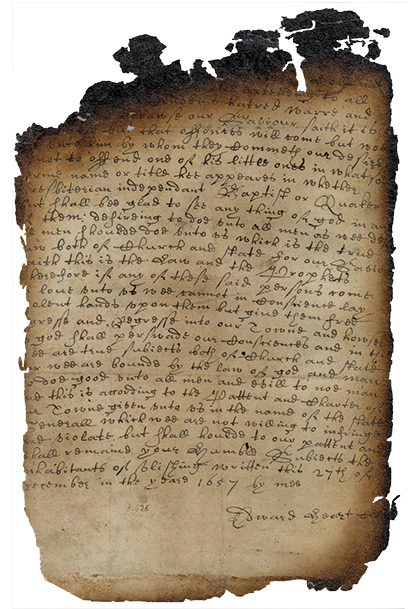 extending to all
hatred warre and
because our Saviour saith it is
that offences will come but woe
unto him by whom they Commeth our desire
not to offend one of his little ones in what so
forme name or title hee appeares in whether
presbiterian independant Baptist or Quaker
but shall bee glad to see any thing of god in any
them: desireing to doe vnto all men as wee des
ll men shoulde doe vnto vs which is the true
law both of Church and State for our Saviou
saith this is the Law and the Prophets
Therefore if any of these said persons come
love vnto vs wee cannot in Conscience lay
violent hands vpon them but give them free
egresse and Regresse into our Towne and howses
god shall perswade our Consciences and in this
wee are true subjects both of Church and State
wee are bounde by the law of god and man
doe good vnto all men and evill to noe man
and this is according to the Pattent and Charter of
Towne given vnto vs in the name of the States
generall which wee are not willing to infringe
violate but shall houlde to our pattent and
shall remaine Your Humble Subjects the
inhabitants of vlishing written this 27th of
December in the yeare 1657 by mee
Edward Heart